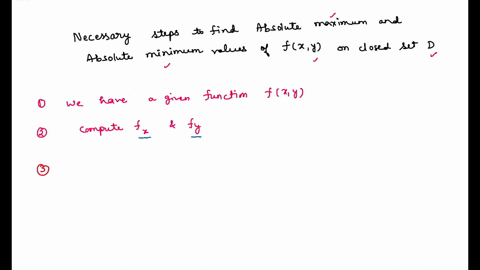 Necessary steps to find Absolute maximum and
Absolute minimum values of f(x,y) on closed set D
① We have a given function f(x,y)
② Compute fx & fy
③